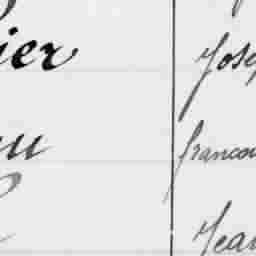 ier Jose
au francou
Jean